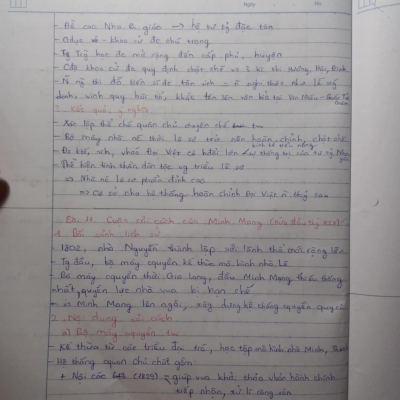 Ngày No
- Đề cao Nho giáo → hệ tư tg độc tôn
- Gdục và khoa cử đc chú trọng
- Tg Trg học đc mở rộng đến cấp phủ, huyện
- Các khoa cử đc quy định chặt chẽ vs 3 kì thi Hương, Hội, Đình
danh, vinh quy bái tổ, khắc tên lên văn bia tại Văn Miếu - Quốc Tử
Giám
2. Kết quả, ý nghĩa
- Xác lập thể chế quân chủ chuyên chế
- Bộ máy nhà nc thời Lê sơ trở nên hoàn chỉnh, chặt chẽ
- Thể hiện tinh thần dân tộc vg triều Lê sơ
⇒ Nhà nc Lê sơ phát triển đỉnh cao
⇒ Cơ sở cho hệ thống hành chính Đại Việt ở thế kỉ sau
Bài 11: Cuộc cải cách của Minh Mạng (nửa đầu tkỷ XIX)
1. Bối cảnh lịch sử
- 1802, nhà Nguyễn thành lập với lãnh thổ mở rộng lớn
- Tg đầu, bộ máy nguyên kế thừa mô hình nhà Lê
- Bộ máy nguyên thời Gia Long, đầu Minh Mạng thiếu thống
nhất, quyền lực nhà vua bị hạn chế
⇒ Minh Mạng lên ngôi, xây dựng hệ thống nguyên quy củ
2. Nội dung cải cách
a) Bộ máy nguyên tw
- Kế thừa từ các triều đại trc, học tập mô hình nhà Minh, Thanh
- Hệ thống quan chủ chốt gồm
+ Nội các (1829) → giúp vua khởi thảo văn bản hành chính
tiếp nhận, xử lí công văn